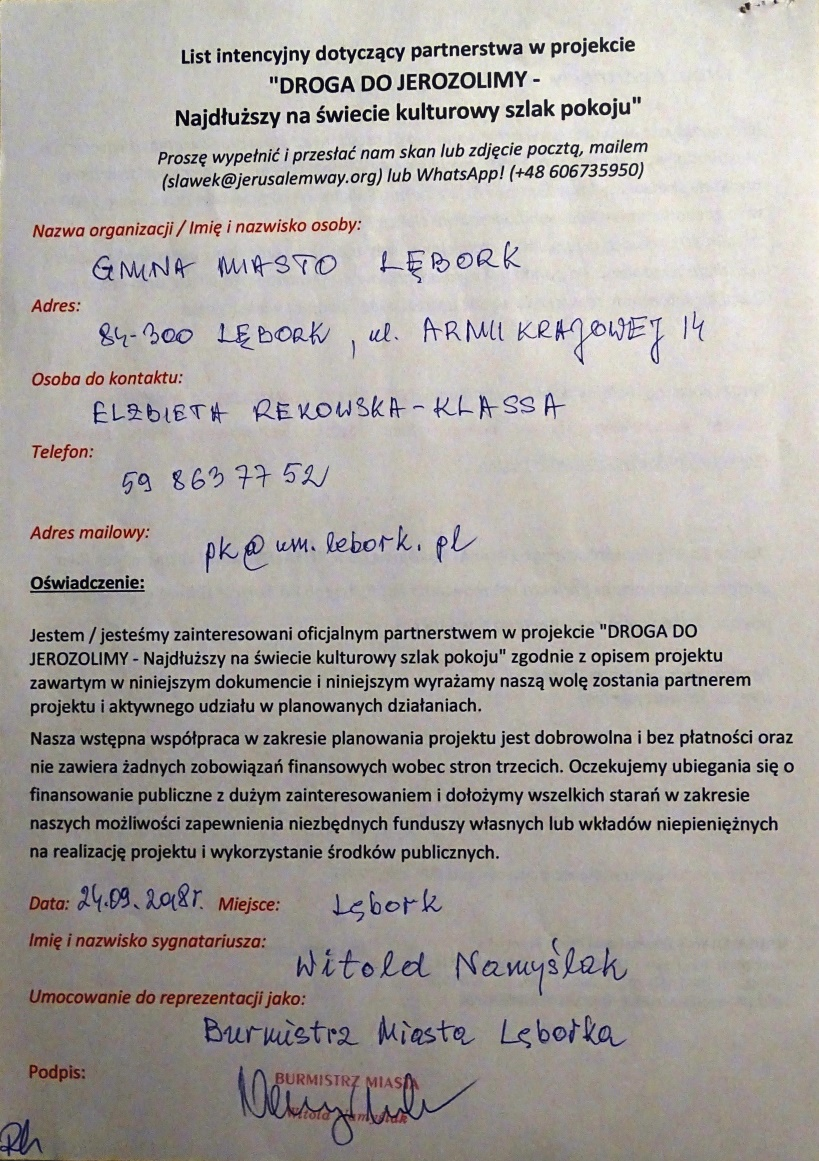 List intencyjny dotyczący partnerstwa w projekcie
"DROGA DO JEROZOLIMY -
Najdłuższy na świecie kulturowy szlak pokoju"
Proszę wypełnić i przesłać nam skan lub zdjęcie pocztą, mailem
(slawek@jerusalemway.org) lub WhatsApp! (+48 606735950)
Nazwa organizacji / Imię i nazwisko osoby:
GMINA MIASTO LĘBORK
Adres:
84-300 LĘBORK, ul. ARMII KRAJOWEJ 14
Osoba do kontaktu:
ELŻBIETA REKOWSKA-KLASSA
Telefon:
59 863 77 52
Adres mailowy: pk@um.lebork.pl
Oświadczenie:
Jestem / jesteśmy zainteresowani oficjalnym partnerstwem w projekcie "DROGA DO
JEROZOLIMY - Najdłuższy na świecie kulturowy szlak pokoju" zgodnie z opisem projektu
zawartym w niniejszym dokumencie i niniejszym wyrażamy naszą wolę zostania partnerem
projektu i aktywnego udziału w planowanych działaniach.
Nasza wstępna współpraca w zakresie planowania projektu jest dobrowolna i bez płatności oraz
nie zawiera żadnych zobowiązań finansowych wobec stron trzecich. Oczekujemy ubiegania się o
finansowanie publiczne z dużym zainteresowaniem i dołożymy wszelkich starań w zakresie
naszych możliwości zapewnienia niezbędnych funduszy własnych lub wkładów niepieniężnych
na realizację projektu i wykorzystanie środków publicznych.
Data: 24.09.2018r. Miejsce: Lębork
Imię i nazwisko sygnatariusza:
Witold Namyślak
Umocowanie do reprezentacji jako:
Burmistrz Miasta Lęborka
Podpis: BURMISTRZ MIASTA
Witold Namyślak